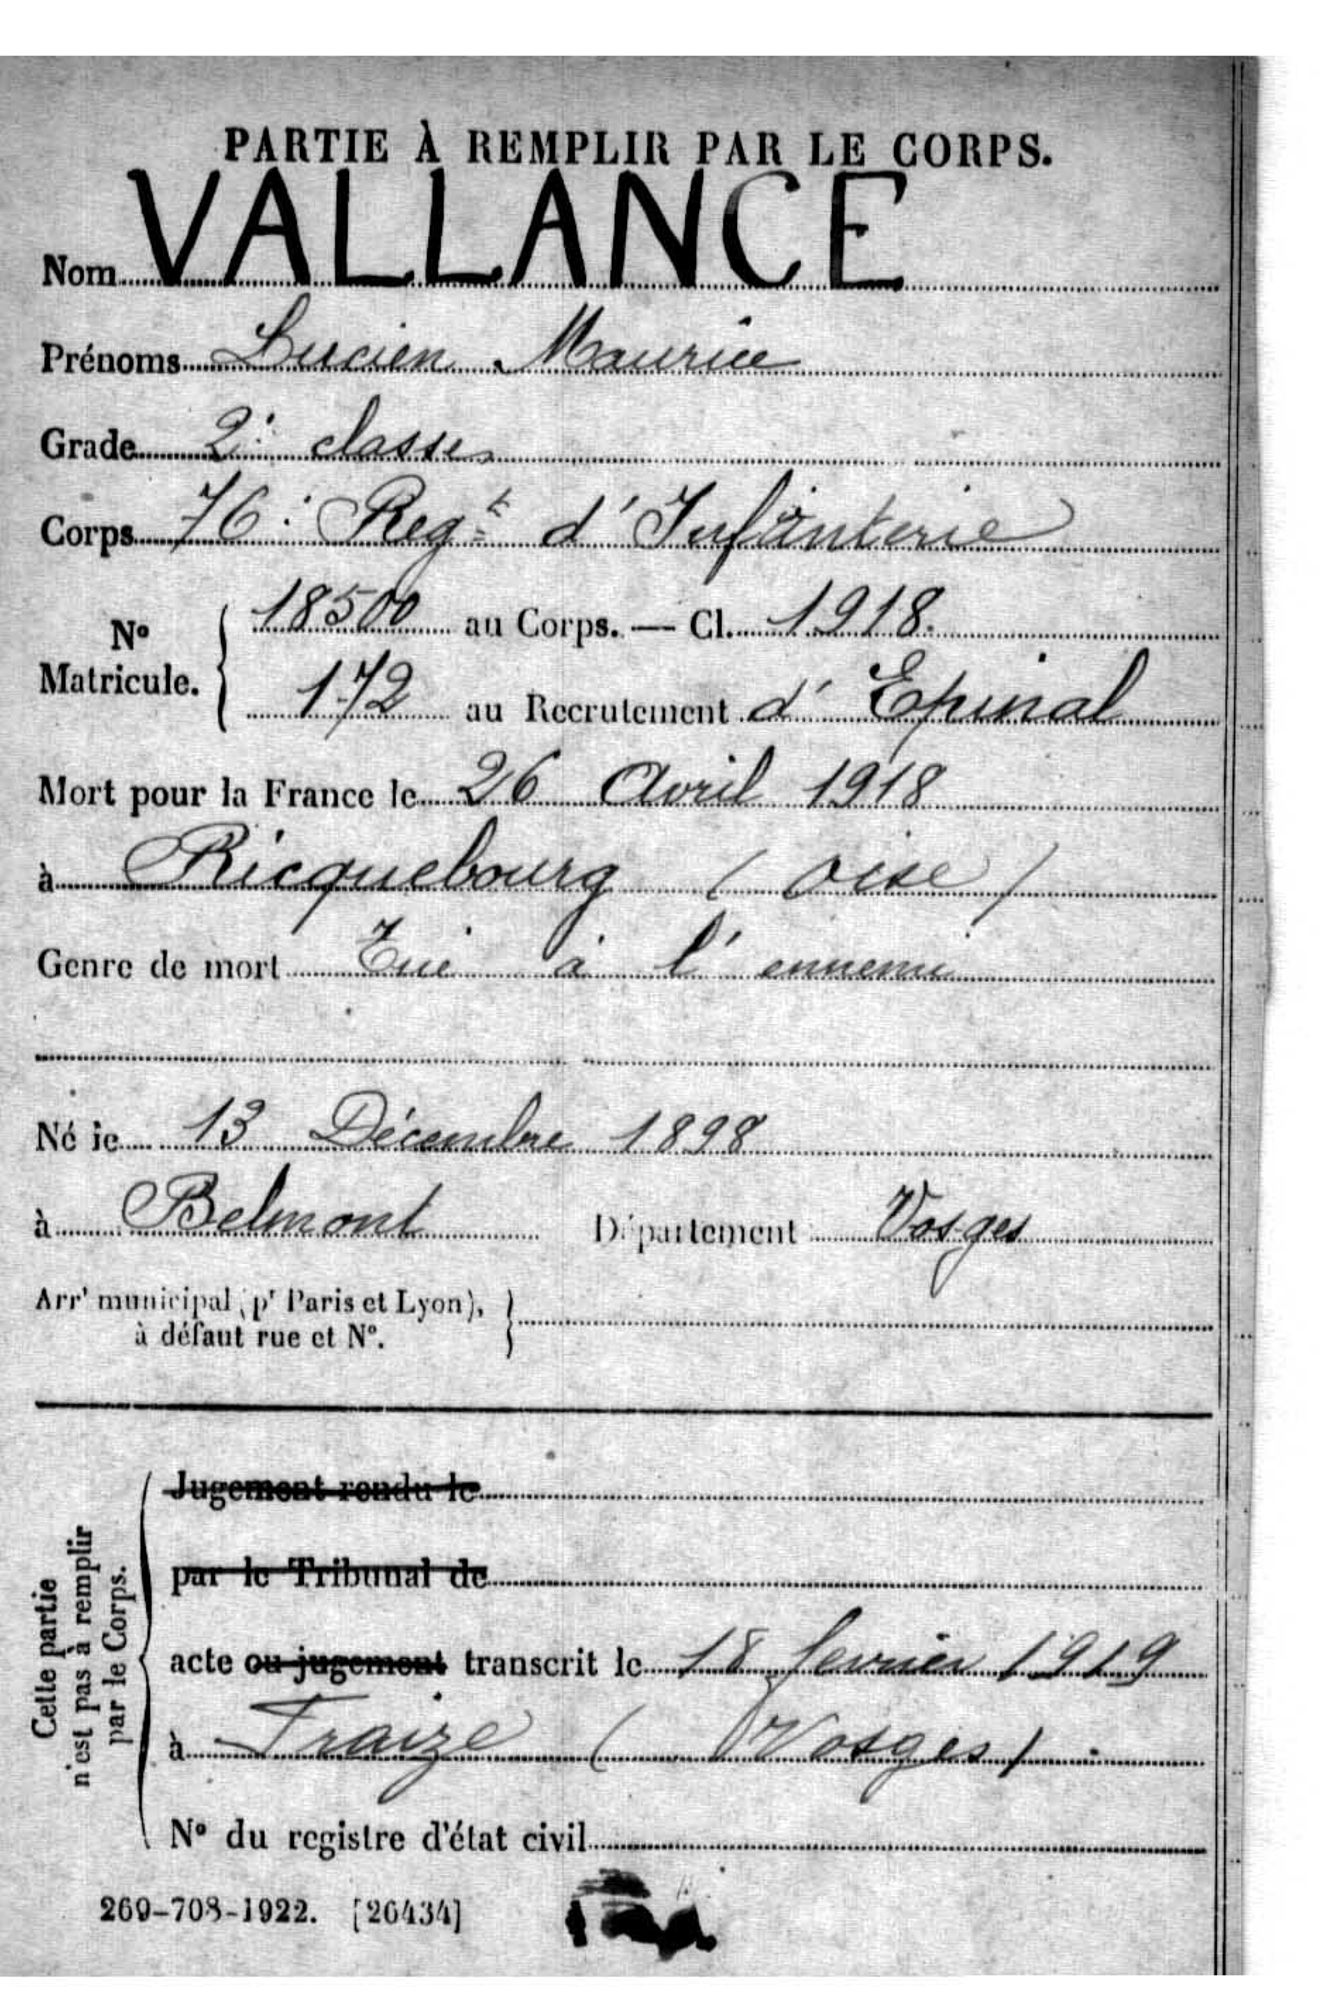 PARTIE À REMPLIR PAR LE CORPS.
Nom VALLANCE
Prénoms Lucien Maurice
Grade 2e classe
Corps 76e Regt d'Infanterie
No Matricule. { 18500 au Corps. — Cl. 1918.
172 au Recrutement d'Epinal
Mort pour la France le 26 Avril 1918
à Ricquebourg (oise)
Genre de mort Tué à l'ennemi
Né le 13 Décembre 1898
à Belmont Département Vosges
Arrt municipal (pr Paris et Lyon), }
à défaut rue et No.
Cette partie
n'est pas à remplir
par le Corps.
Jugement rendu le
par le Tribunal de
acte ou jugement transcrit le 18 fevrier 1919
à Fraize (Vosges).
No du registre d'état civil
269-708-1922. [26434]